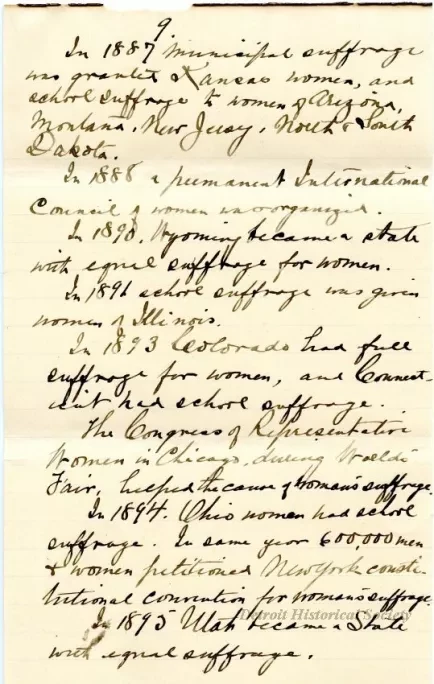 9.
In 1887 municipal suffrage
was granted Kansas women, and
school suffrage to women of Arizona,
Montana, New Jersey, North & South
Dakota.
In 1888 a permanent International
Council of women was organized.
In 1890, Wyoming became a state
with equal suffrage for women.
In 1891 school suffrage was given
women of Illinois.
In 1893 Colorado had full
suffrage for women, and Connect-
icut had school suffrage.
The Congress of Representative
Women in Chicago, during World's
Fair, helped the cause of woman's suffrage.
In 1894. Ohio women had school
suffrage. In same year 600,000 men
& women petitioned New York consti-
tutional convention for woman's suffrage.
In 1895 Utah became a State
with equal suffrage.
Detroit Historical Society